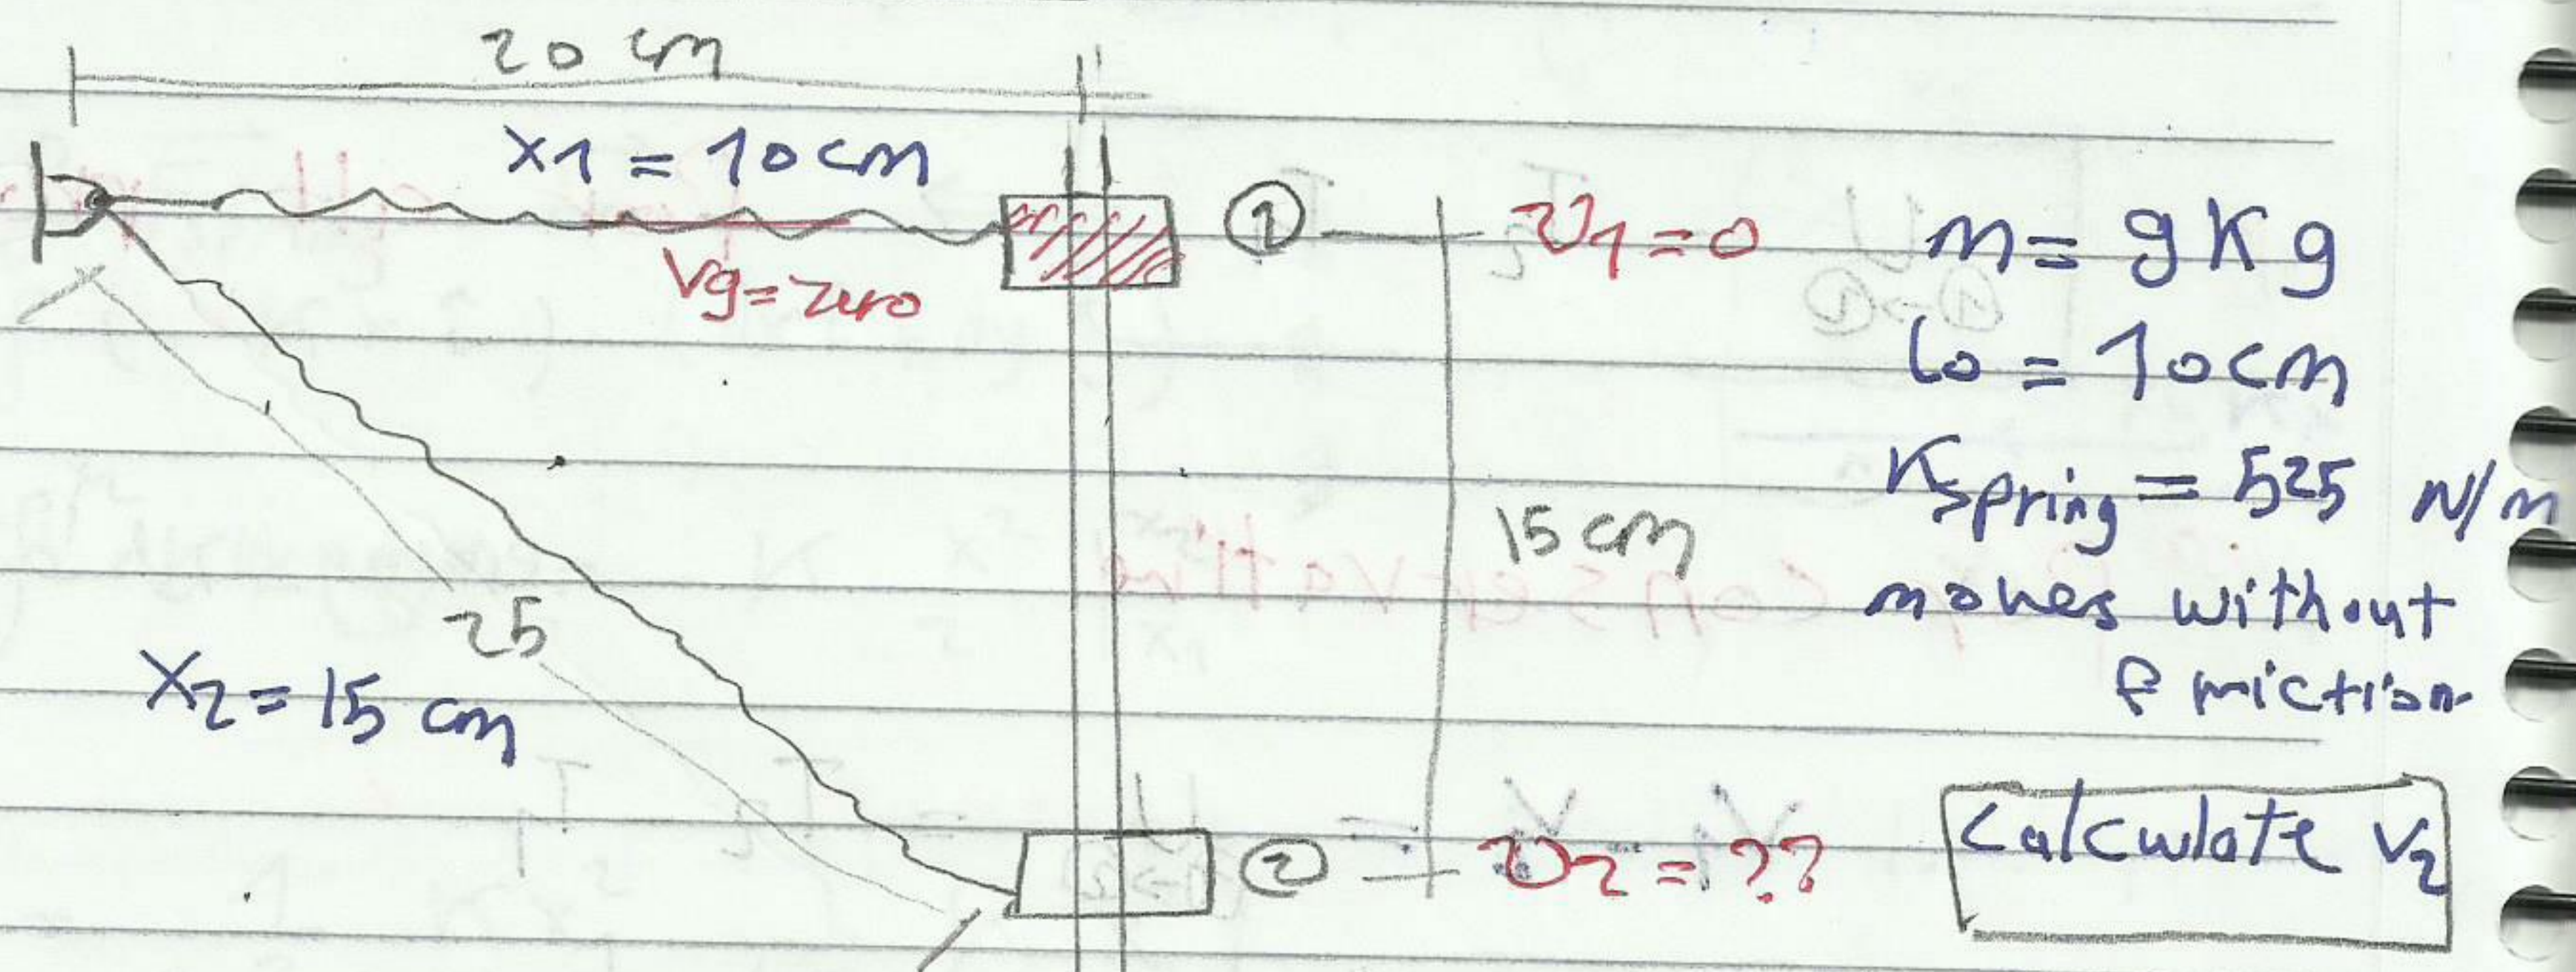 20 cm
x1 = 10 cm
Vg = zero
1
v1 = 0
m = 9 Kg
lo = 10 cm
Kspring = 525 N/m
15 cm
moves without
friction
25
x2 = 15 cm
2
v2 = ??
Calculate v2